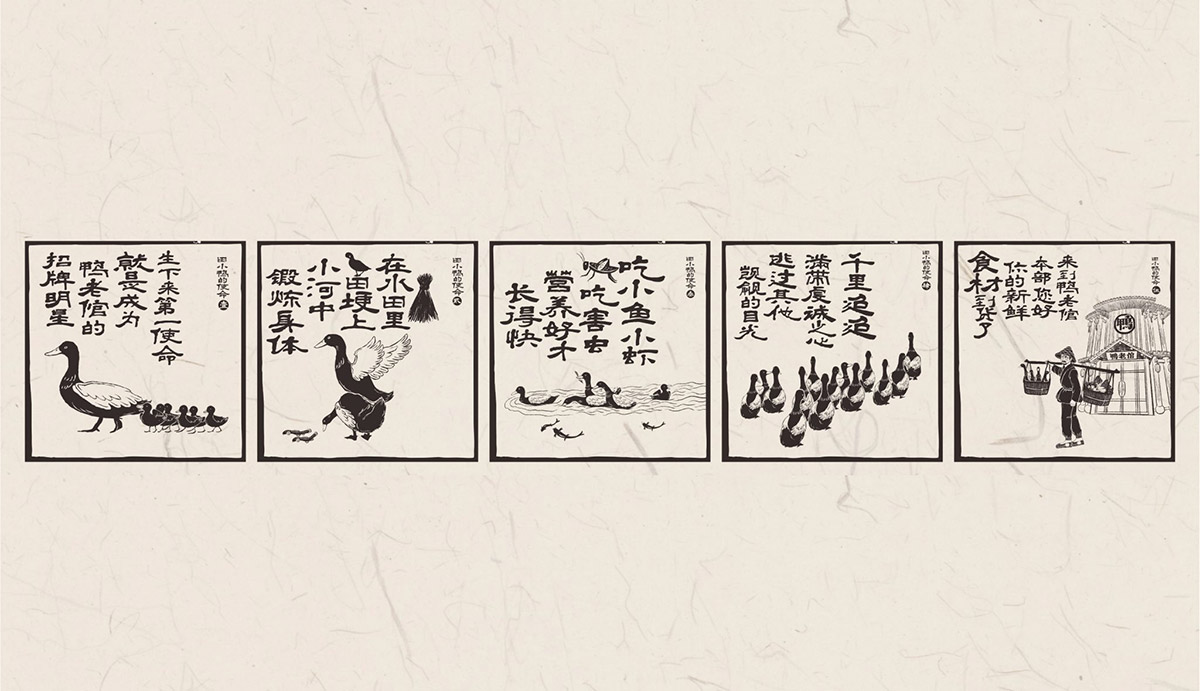 田小鸭的使命 壹
生下来第一使命
就是成为
鸭老倌的
招牌明星
田小鸭的使命 贰
在水田里
田埂上
小河中
锻炼身体
田小鸭的使命 叁
吃小鱼小虾
吃害虫
营养好才
长得快
田小鸭的使命 肆
千里迢迢
满带虔诚之心
逃过其他
觊觎的目光
田小鸭的使命 伍
来到鸭老倌
本部您好
你的新鲜
食材到货了
鸭
鸭老倌